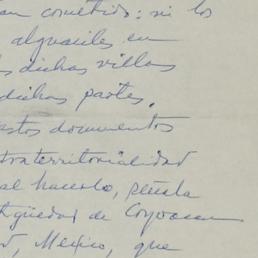 cometido: ni los
alguaciles en
dichas villas
dichas partes.
estos documentos
traterritorialidad
al hacerlo, señala
tigüedad de Coyoacan
México, que